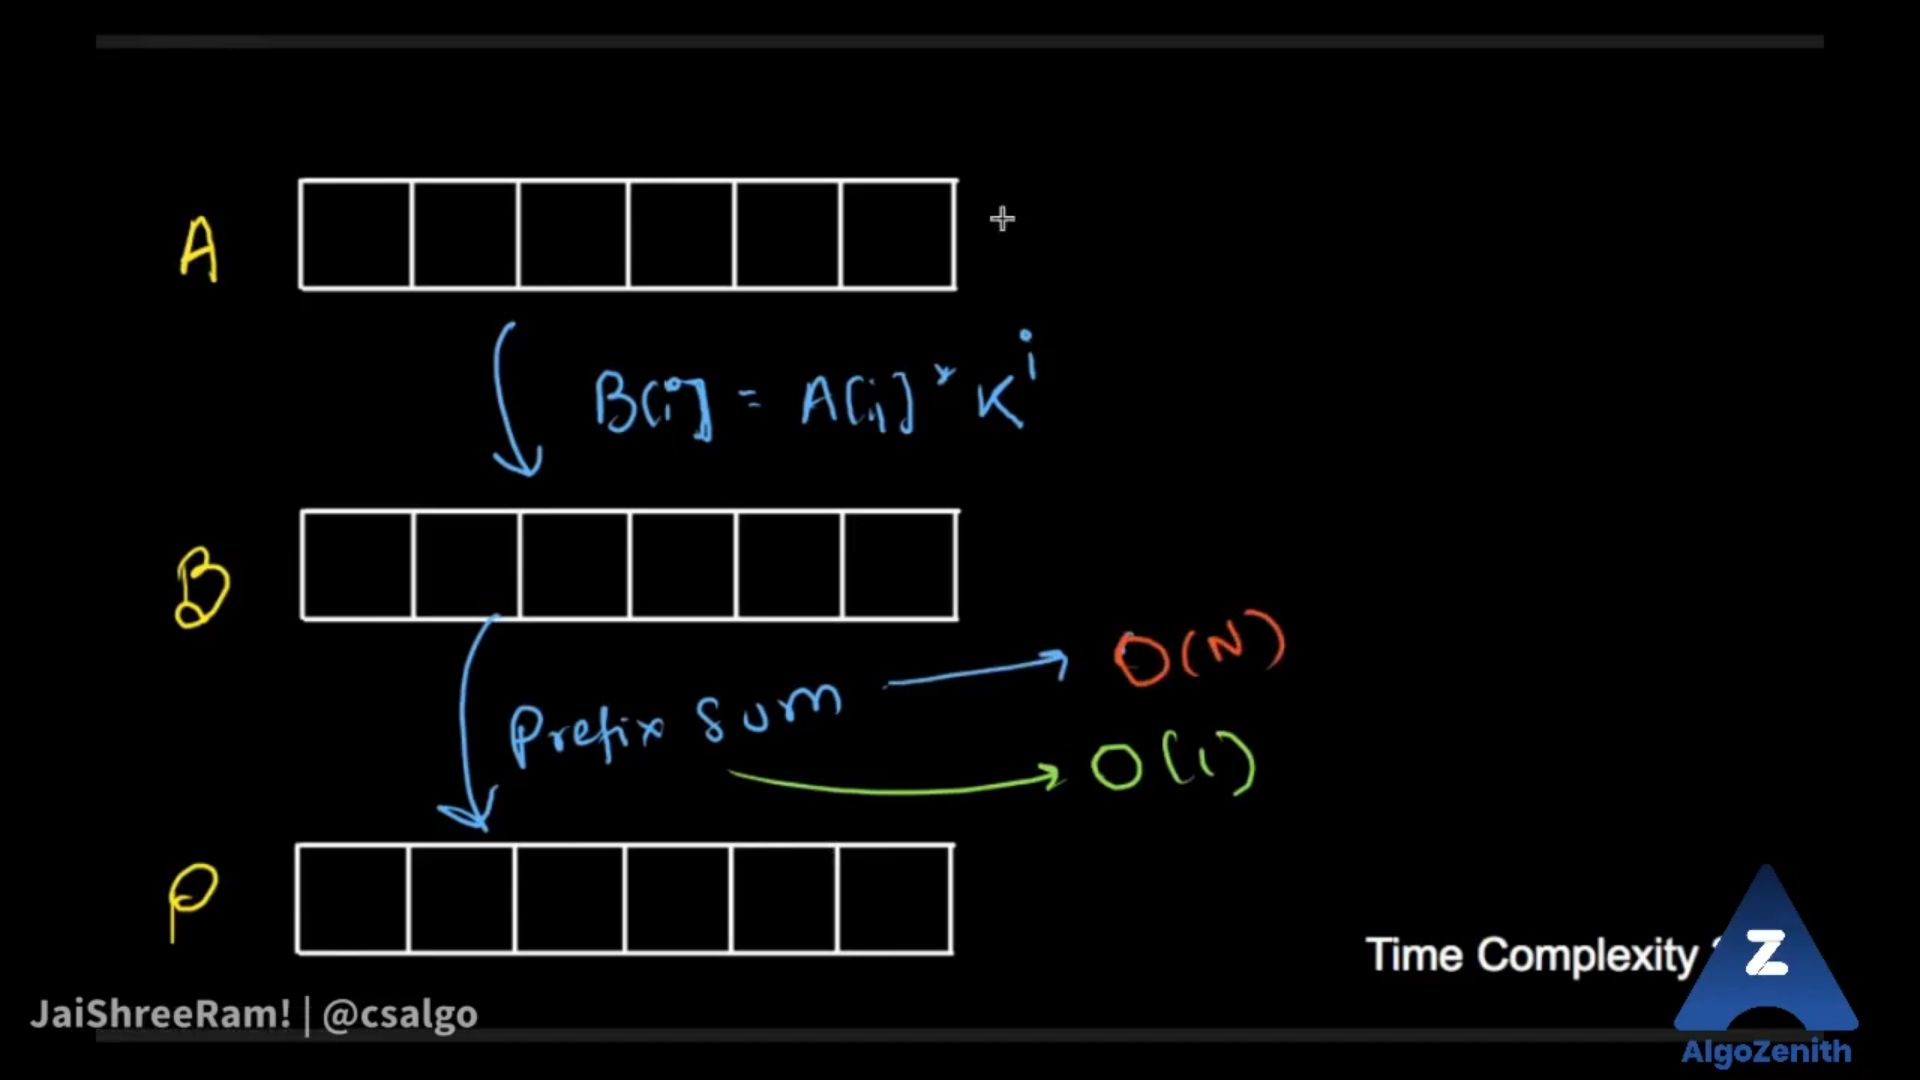 A
B[i] = A[i] * K^i
B
Prefix sum → O(N)
→ O(1)
P
Time Complexity
Z
JaiShreeRam! | @csalgo
AlgoZenith